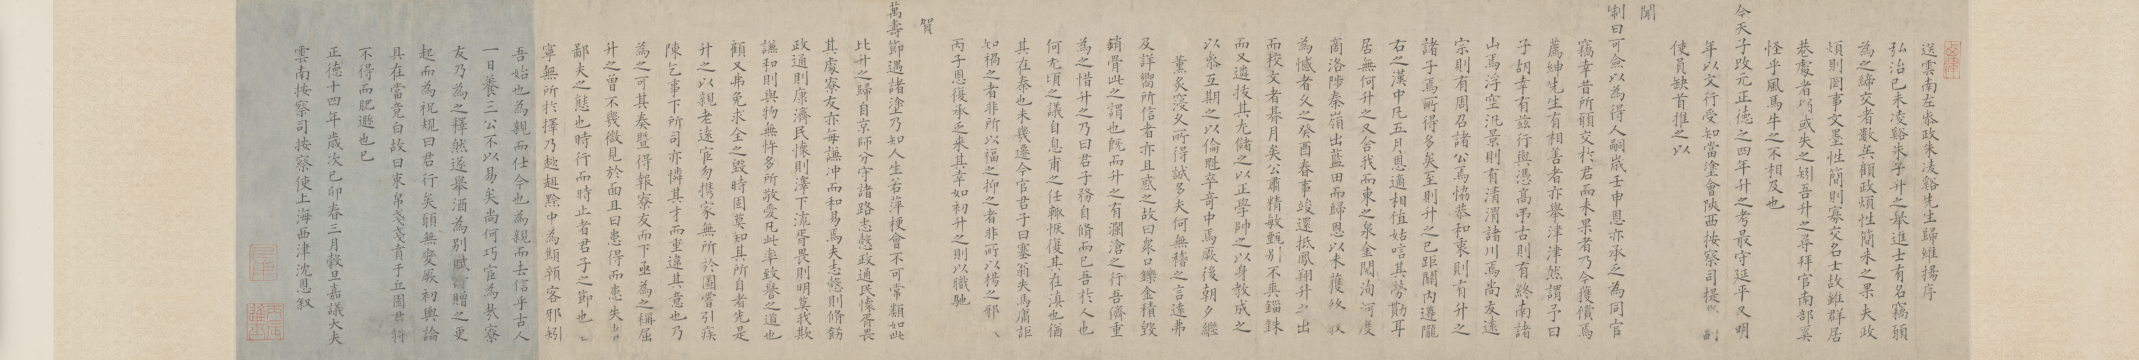 送雲南左叅政朱凌谿先生歸維揚序
弘治己未凌谿朱子升之舉進士有名竊願
為之締交者數矣顧政煩性簡未之果夫政
煩則罔事文墨性簡則寡交名士故雖群居
巷處者猶或失之矧吾升之尋拜官南部奚
怪乎風馬牛之不相及也
今天子改元正德之四年升之考最守延平又明
年以文行受知當塗會陝西按察司提 副
使員缺首推之以
聞
制曰可僉以為得人嗣歲壬申恩亦承乏為同官
竊幸昔所願交於君而未果者乃今獲償焉
薦紳先生有相善者亦舉津津然謂予曰
子胡幸有兹行輿憑高弔古則有終南諸
山焉浮空汎景則有清渭諸川焉尚友遠
宗則有周召諸公焉恊恭和衷則有升之
諸子焉所得多矣至則升之已距關內遵隴
右之漢中凡五月恩適相值姑唁其勞勩耳
居無何升之又舍我而東之泉金閱洵河度
商洛陟秦嶺出藍田而歸恩以未獲
為憾者久之癸酉春事竣還抵鳳翔升之出
而校文者朞月矣公肅精敏甄别不爽錙銖
而又遴拔其尤儲之以正學帥之以身教成之
以叅互期之以倫魁卒奇中焉厥後朝夕繼
薰炙寖久所得誠多夫何無稽之言遠弗
及詳嚮所信者亦且惑之故曰衆口鑠金積毀
銷骨此之謂也旣而升之有瀾滄之行吾儕重
為之惜升之乃曰君子務自脩而已吾於人也
何尤頃之議自息甫之任輙恢復其在滇也猶
其在秦也未幾遷今官君子曰塞翁失馬庸詎
知禍之者非所以福之抑之者非所以揚之邪
丙子恩復承乏来其幸如初升之則以職馳
賀
萬壽節遇諸塗乃知人生若萍梗會不可常類如此
比升之歸自京師分守諸路志慤政通民懷胥畏
其處寮友亦每謙冲而和易焉夫志慤則脩飭
政通則康濟民懷則澤下流胥畏則明莫我欺
謙和則與物無忤多所敬愛凡此率致譽之道也
顧又弗免求全之毀時固莫知其所自者先是
升之以親老遠宦勿携家無所於圖嘗引疾
陳乞事下所司亦憐其才而重違其意也乃
為之可其奏暨得報寮友而下亟為之稱屈
升之曾不幾微見於面且曰患得而患失
鄙夫之態也時行而時止者君子之節也
寧無所於擇乃趑趄黔中為顑頷客邪矧
吾始也為親而仕今也為親而去信乎古人
一日養三公不以易矣尚何巧宦為哉寮
友乃為之釋然遂舉酒為别賦 贈之更
起而為祝規曰君行矣願無變厥初輿論
具在當竟白故曰束帛戔戔賁于丘園君將
不得而肥遯也已
正德十四年歲次己卯春三月穀旦嘉議大夫
雲南按察司按察使上海西津沈恩叙